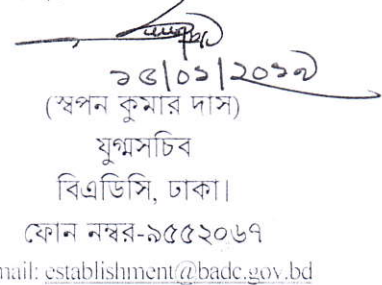 (স্বপন কুমার দাস)
যুগ্মসচিব
বিএডিসি, ঢাকা।
ফোন নম্বর-৯৫৫২০৬৭
mail: establishment@badc.gov.bd